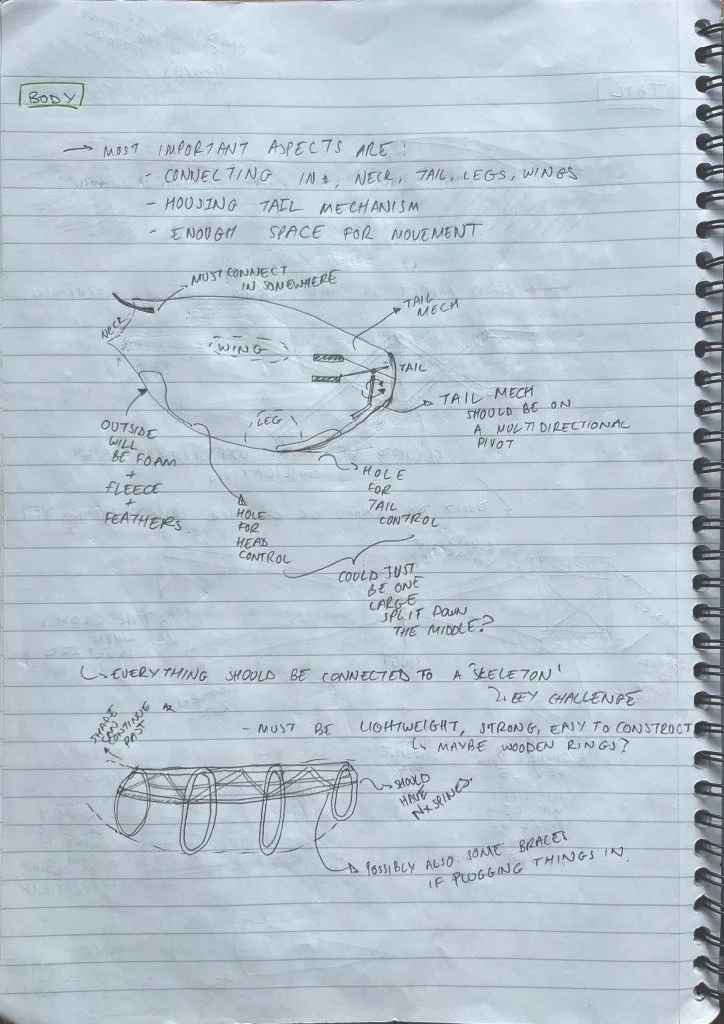 BODY
→ MOST IMPORTANT ASPECTS ARE:
- CONNECTING IN, NECK, TAIL, LEGS, WINGS
- HOUSING TAIL MECHANISM
- ENOUGH SPACE FOR MOVEMENT
MUST CONNECT
IN SOMEWHERE
NECK
WING
TAIL
MECH
TAIL
LEG
TAIL MECH
SHOULD BE ON
A MULTIDIRECTIONAL
PIVOT
OUTSIDE
WILL
BE FOAM
+
FLEECE
+
FEATHERS
HOLE
FOR
HEAD
CONTROL
HOLE
FOR
TAIL
CONTROL
COULD JUST
BE ONE
LARGE
SPLIT DOWN
THE MIDDLE?
↳ EVERYTHING SHOULD BE CONNECTED TO A 'SKELETON'
↳ KEY CHALLENGE
- MUST BE LIGHTWEIGHT, STRONG, EASY TO CONSTRUCT
↳ MAYBE WOODEN RINGS?
SHAPE
CAN
CONTINUE
PAST
SHOULD
HAVE
SPINES
POSSIBLY ALSO SOME BRACES
IF PLUGGING THINGS IN.